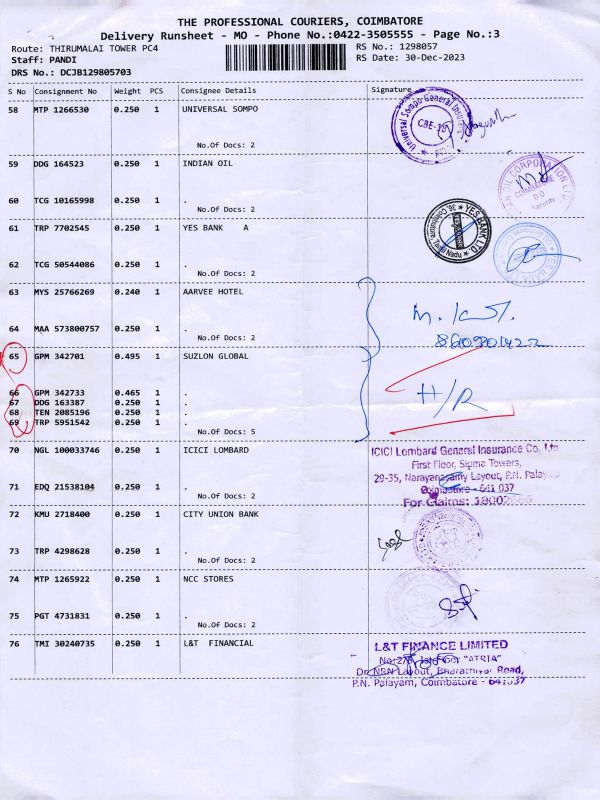 THE PROFESSIONAL COURIERS, COIMBATORE
Delivery Runsheet - MO - Phone No.:0422-3505555 - Page No.:3
Route: THIRUMALAI TOWER PC4 RS No.: 1298057
Staff: PANDI RS Date: 30-Dec-2023
DRS No.: DCJB129805703
S No Consignment No Weight PCS Consignee Details Signature
58 MTP 1266530 0.250 1 UNIVERSAL SOMPO
Universal Sompo General
CBE-18
No.Of Docs: 2
59 DDG 164523 0.250 1 INDIAN OIL
OIL CORPORATION LTD
COIMBATORE
D O
Security
60 TCG 10165998 0.250 1 .
No.Of Docs: 2
61 TRP 7702545 0.250 1 YES BANK A
YES BANK LTD
YES BANK
62 TCG 50544086 0.250 1 .
No.Of Docs: 2
63 MYS 25766269 0.240 1 AARVEE HOTEL
64 MAA 573800757 0.250 1 .
No.Of Docs: 2
65 GPM 342701 0.495 1 SUZLON GLOBAL
66 GPM 342733 0.465 1 .
67 DDG 163387 0.250 1 .
68 TEN 2085196 0.250 1 .
69 TRP 5951542 0.250 1 .
No.Of Docs: 5
H/R
70 NGL 100033746 0.250 1 ICICI LOMBARD
ICICI Lombard General Insurance Co. Ltd
First Floor, Sigma Towers,
29-35, Narayanasamy Layout, P.N. Palay
Coimbatore - 641 037
For Claims:
71 EDQ 21538104 0.250 1 .
No.Of Docs: 2
72 KMU 2718400 0.250 1 CITY UNION BANK
73 TRP 4298628 0.250 1 .
No.Of Docs: 2
74 MTP 1265922 0.250 1 NCC STORES
75 PGT 4731831 0.250 1 .
No.Of Docs: 2
76 TMI 30240735 0.250 1 L&T FINANCIAL
L&T FINANCE LIMITED
"ATRIA"
Dr. NRN Layout, Bharathiyar Road,
P.N. Palayam, Coimbatore - 641037